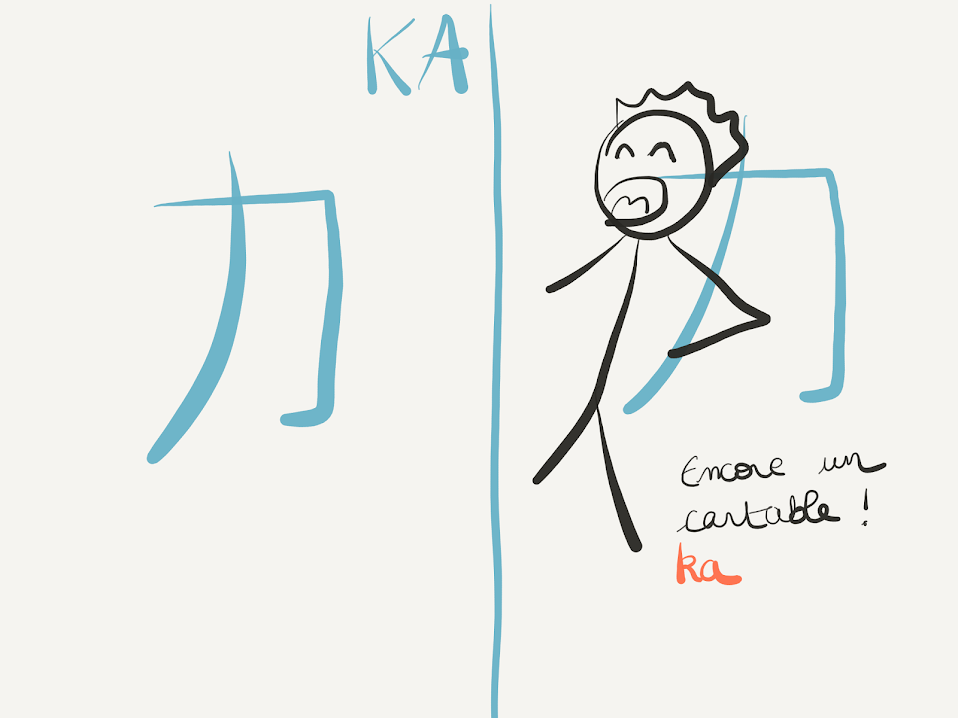 KA
カ
カ
Encore un
cartable !
ka